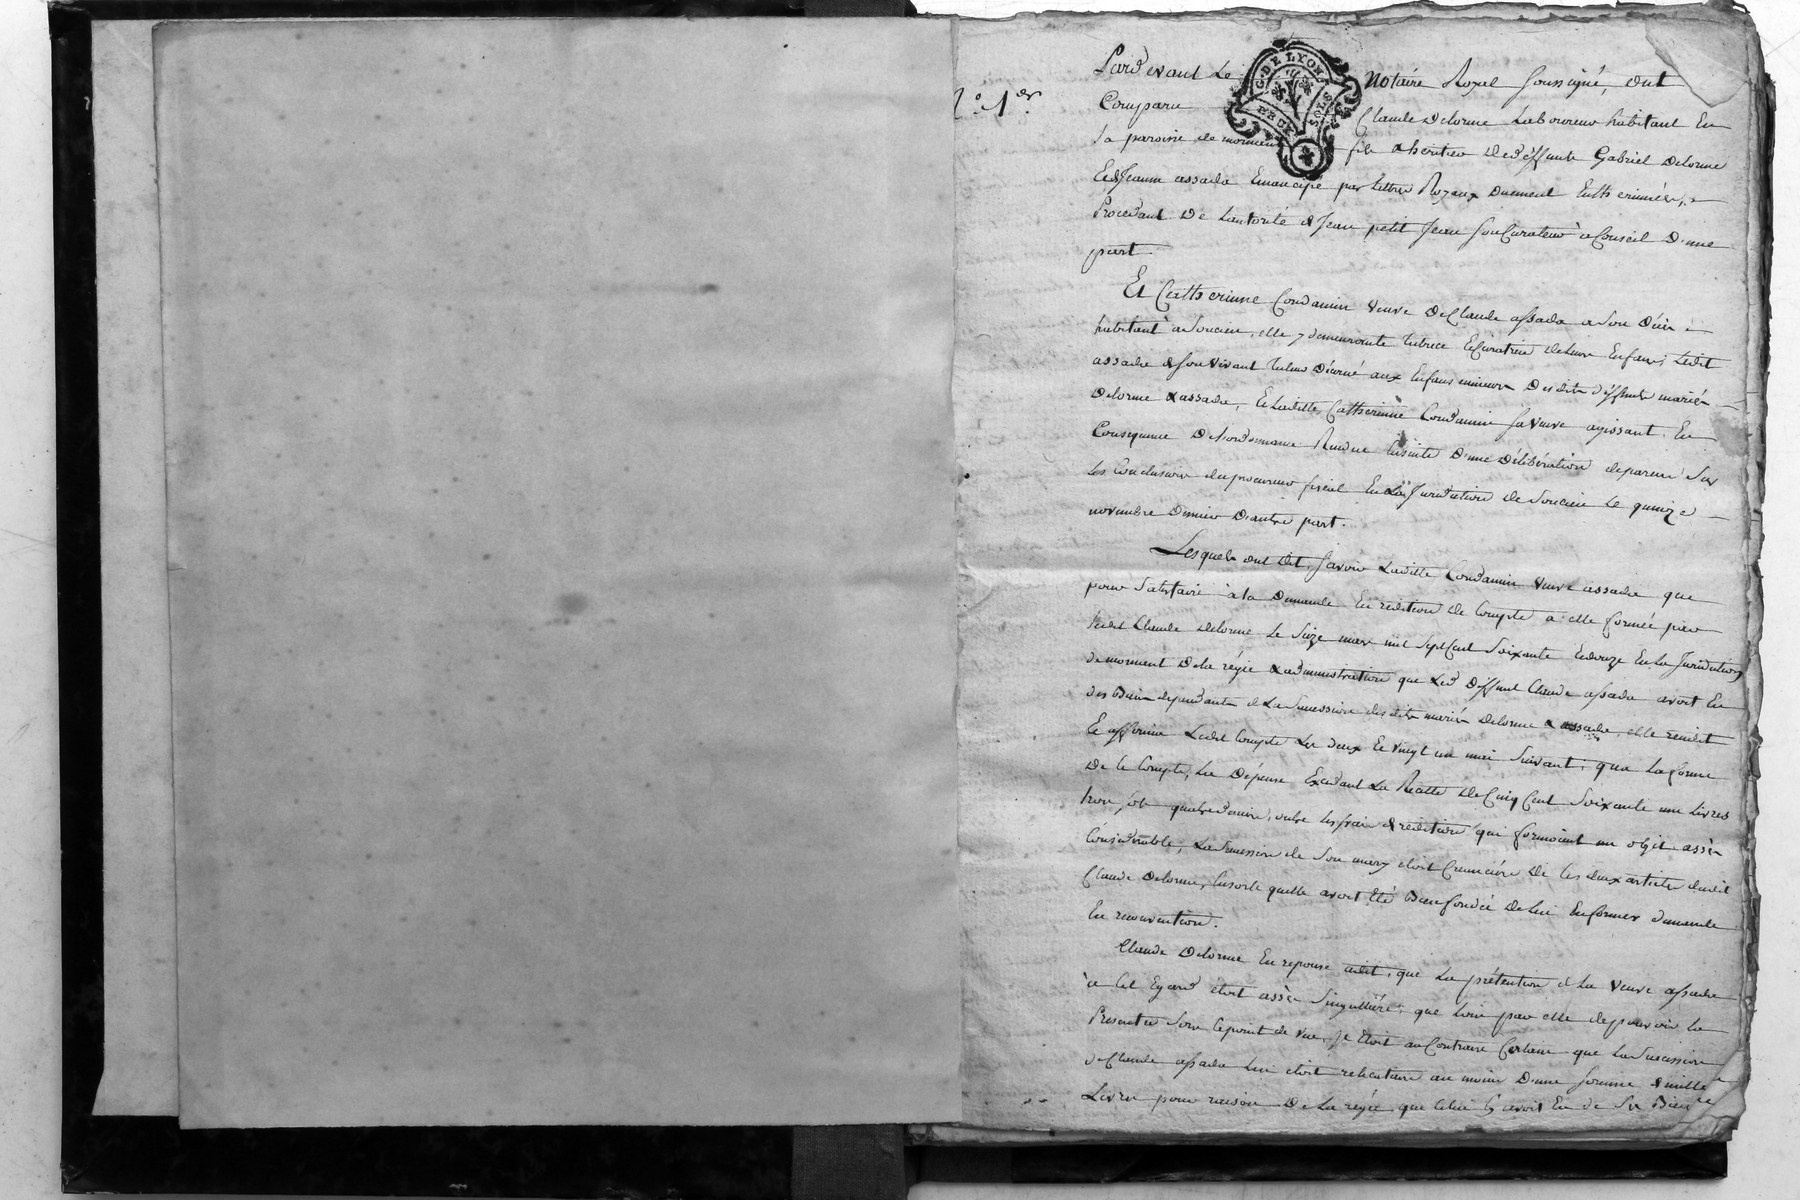 N.º 1.er
G. DE LYON
DEUX SOLS
Pardevant Le Notaire Royal soussigné, ont
Comparu Claude Delorme Laboureur habitant En
la paroisse de mornant fils & heritier de deffunts Gabriel Delorme
Et de Jeanne assada Emancipé par lettres Royaux duement Entherinnées,
Procedant De Lautorité de Jean petit Jean son Curateur à Conseil D'une
part
Et Catherinne Condamin veuve De Claude assada
habitant à Soucieu, elle y demeurante tutrice Et Curatrice de leurs Enfans; Ledit
assada de son vivant tuteur décerné aux Enfans mineurs Desdits deffunts mariés
Delorme & assada, Et Ladite Catherinne Condamin sa veuve agissant En
Consequence De Lordonnance Rendue Ensuite D'une délibération de parens Sur
les Conclusions du procureur fiscal En La Jurisdiction de Soucieu Le quinze
novembre dernier D'autre part.
Lesquels ont dit, savoir Ladite Condamin veuve assada que
pour Satisfaire à la Demande En reddition de Compte à elle formée par
ledit Claude Delorme Le Seize mars mil Sept Cent Soixante Et douze En La Jurisdiction
de mornant De la régie & administration que Led. deffunt Claude assada avoit Eu
des Biens dependants de La Succession desdits mariés Delorme & assada, elle rendit
Et affirma Ledit Compte Les deux Et vingt un mai Suivant, que La forme
De Ce Compte, La Dépense Excedant La Recette De Cinq Cent Soixante une Livres
trois sols quatre deniers, outre les frais de reddition qui formoient un objet assés
Considerable, La Succession de Son mary étoit Creanciére De Ces deux articles dudit
Claude Delorme, Ensorte quelle avoit été Bien fondée De lui En former demande
En reconvention.
Claude Delorme En reponse a dit, que La prétention de La veuve assada
à Cet Egard étoit assés Singulliére, que loin par elle de pouvoir la
Presenter Sous Ce point de vue, il étoit au Contraire Certain que La Succession
de Claude assada lui étoit reliquataire au moins D'une somme de mille
Livres pour raison De La régie que Celui Cy avoit Eu de Ses Biens